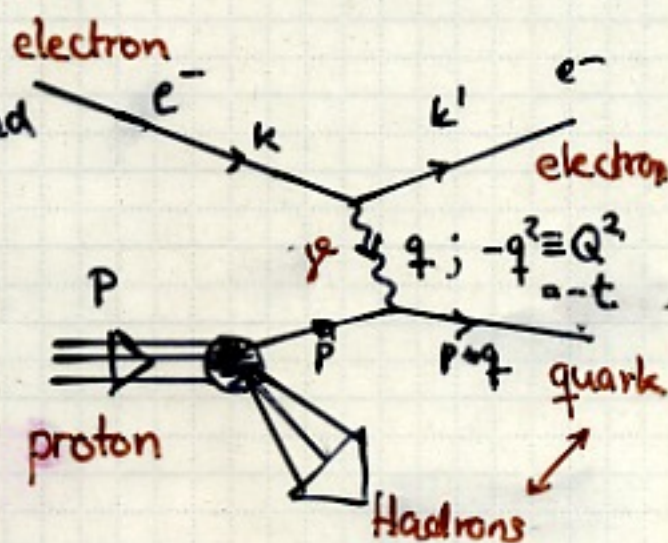 electron
e⁻
e⁻
k
k'
electron
γ q ; -q² ≡ Q²
= -t.
P
p
p+q
quark
proton
Hadrons